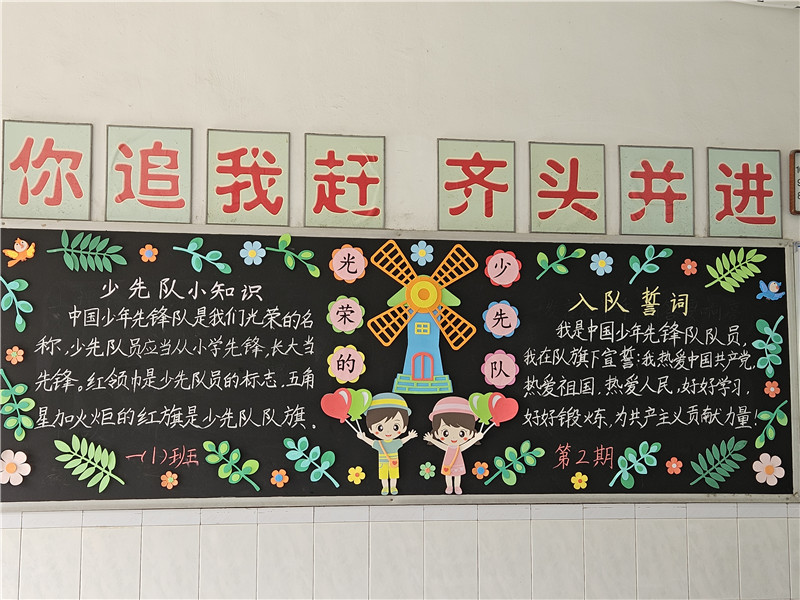 你追我赶 齐头并进
少先队小知识
中国少年先锋队是我们光荣的名
称,少先队员应当从小学先锋,长大当
先锋。红领巾是少先队员的标志,五角
星加火炬的红旗是少先队队旗。
一(1)班
光荣的
少先队
入队誓词
我是中国少年先锋队队员,
我在队旗下宣誓:我热爱中国共产党,
热爱祖国,热爱人民,好好学习,
好好锻炼,为共产主义贡献力量。
第2期